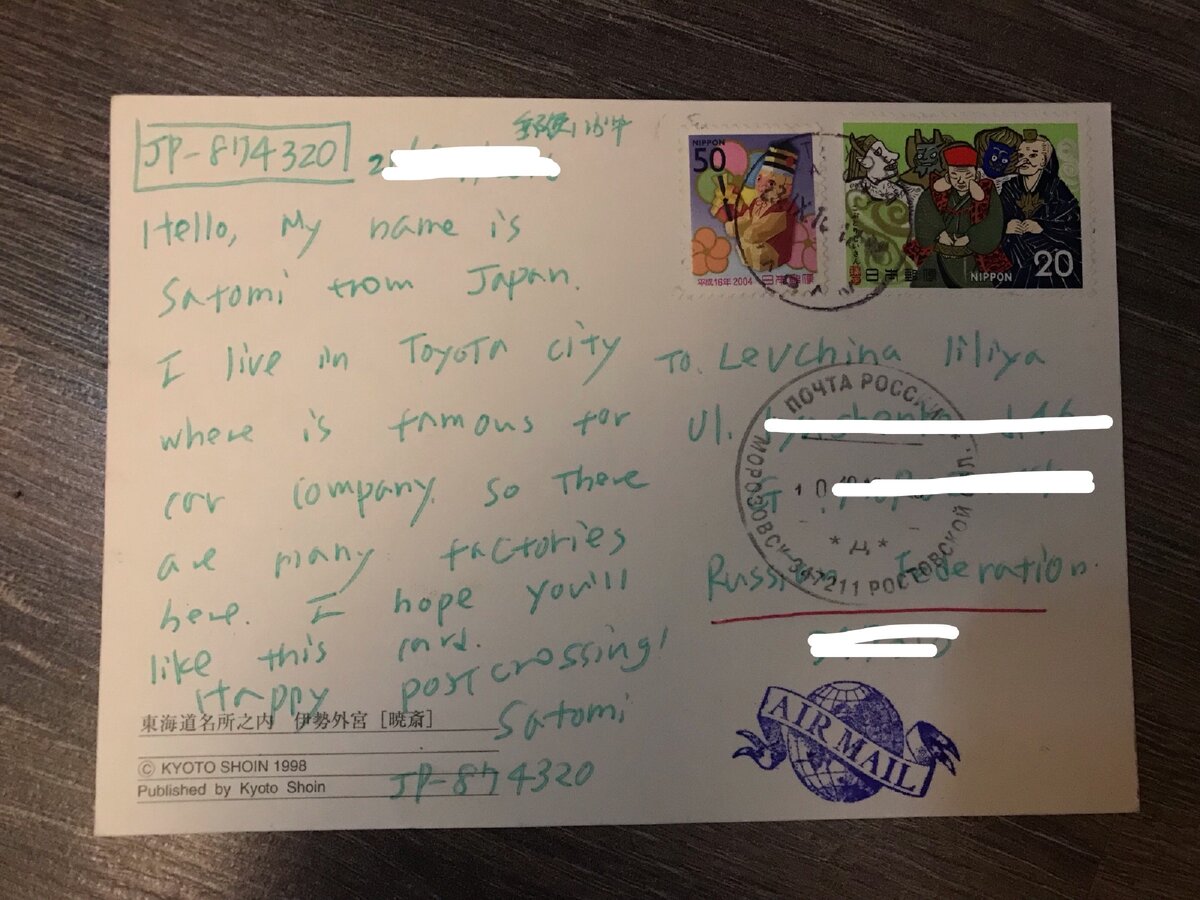 郵便はがき
JP-874320
Hello, My name is
Satomi from Japan.
I live in Toyota city
where is famous for
car company. so there
are many factories
here. I hope you'll
like this card.
Happy postcrossing!
Satomi
JP-874320
東海道名所之内 伊勢外宮 [暁斎]
© KYOTO SHOIN 1998
Published by Kyoto Shoin
NIPPON
50
平成16年 2004 日本郵便
日本郵便 NIPPON 20
To. Levchina liliya
Ul.
Russian Federation.
ПОЧТА РОССИИ
МОРОЗОВСК 347211 РОСТОВСКОЙ ОБЛ.
* Д *
AIR MAIL